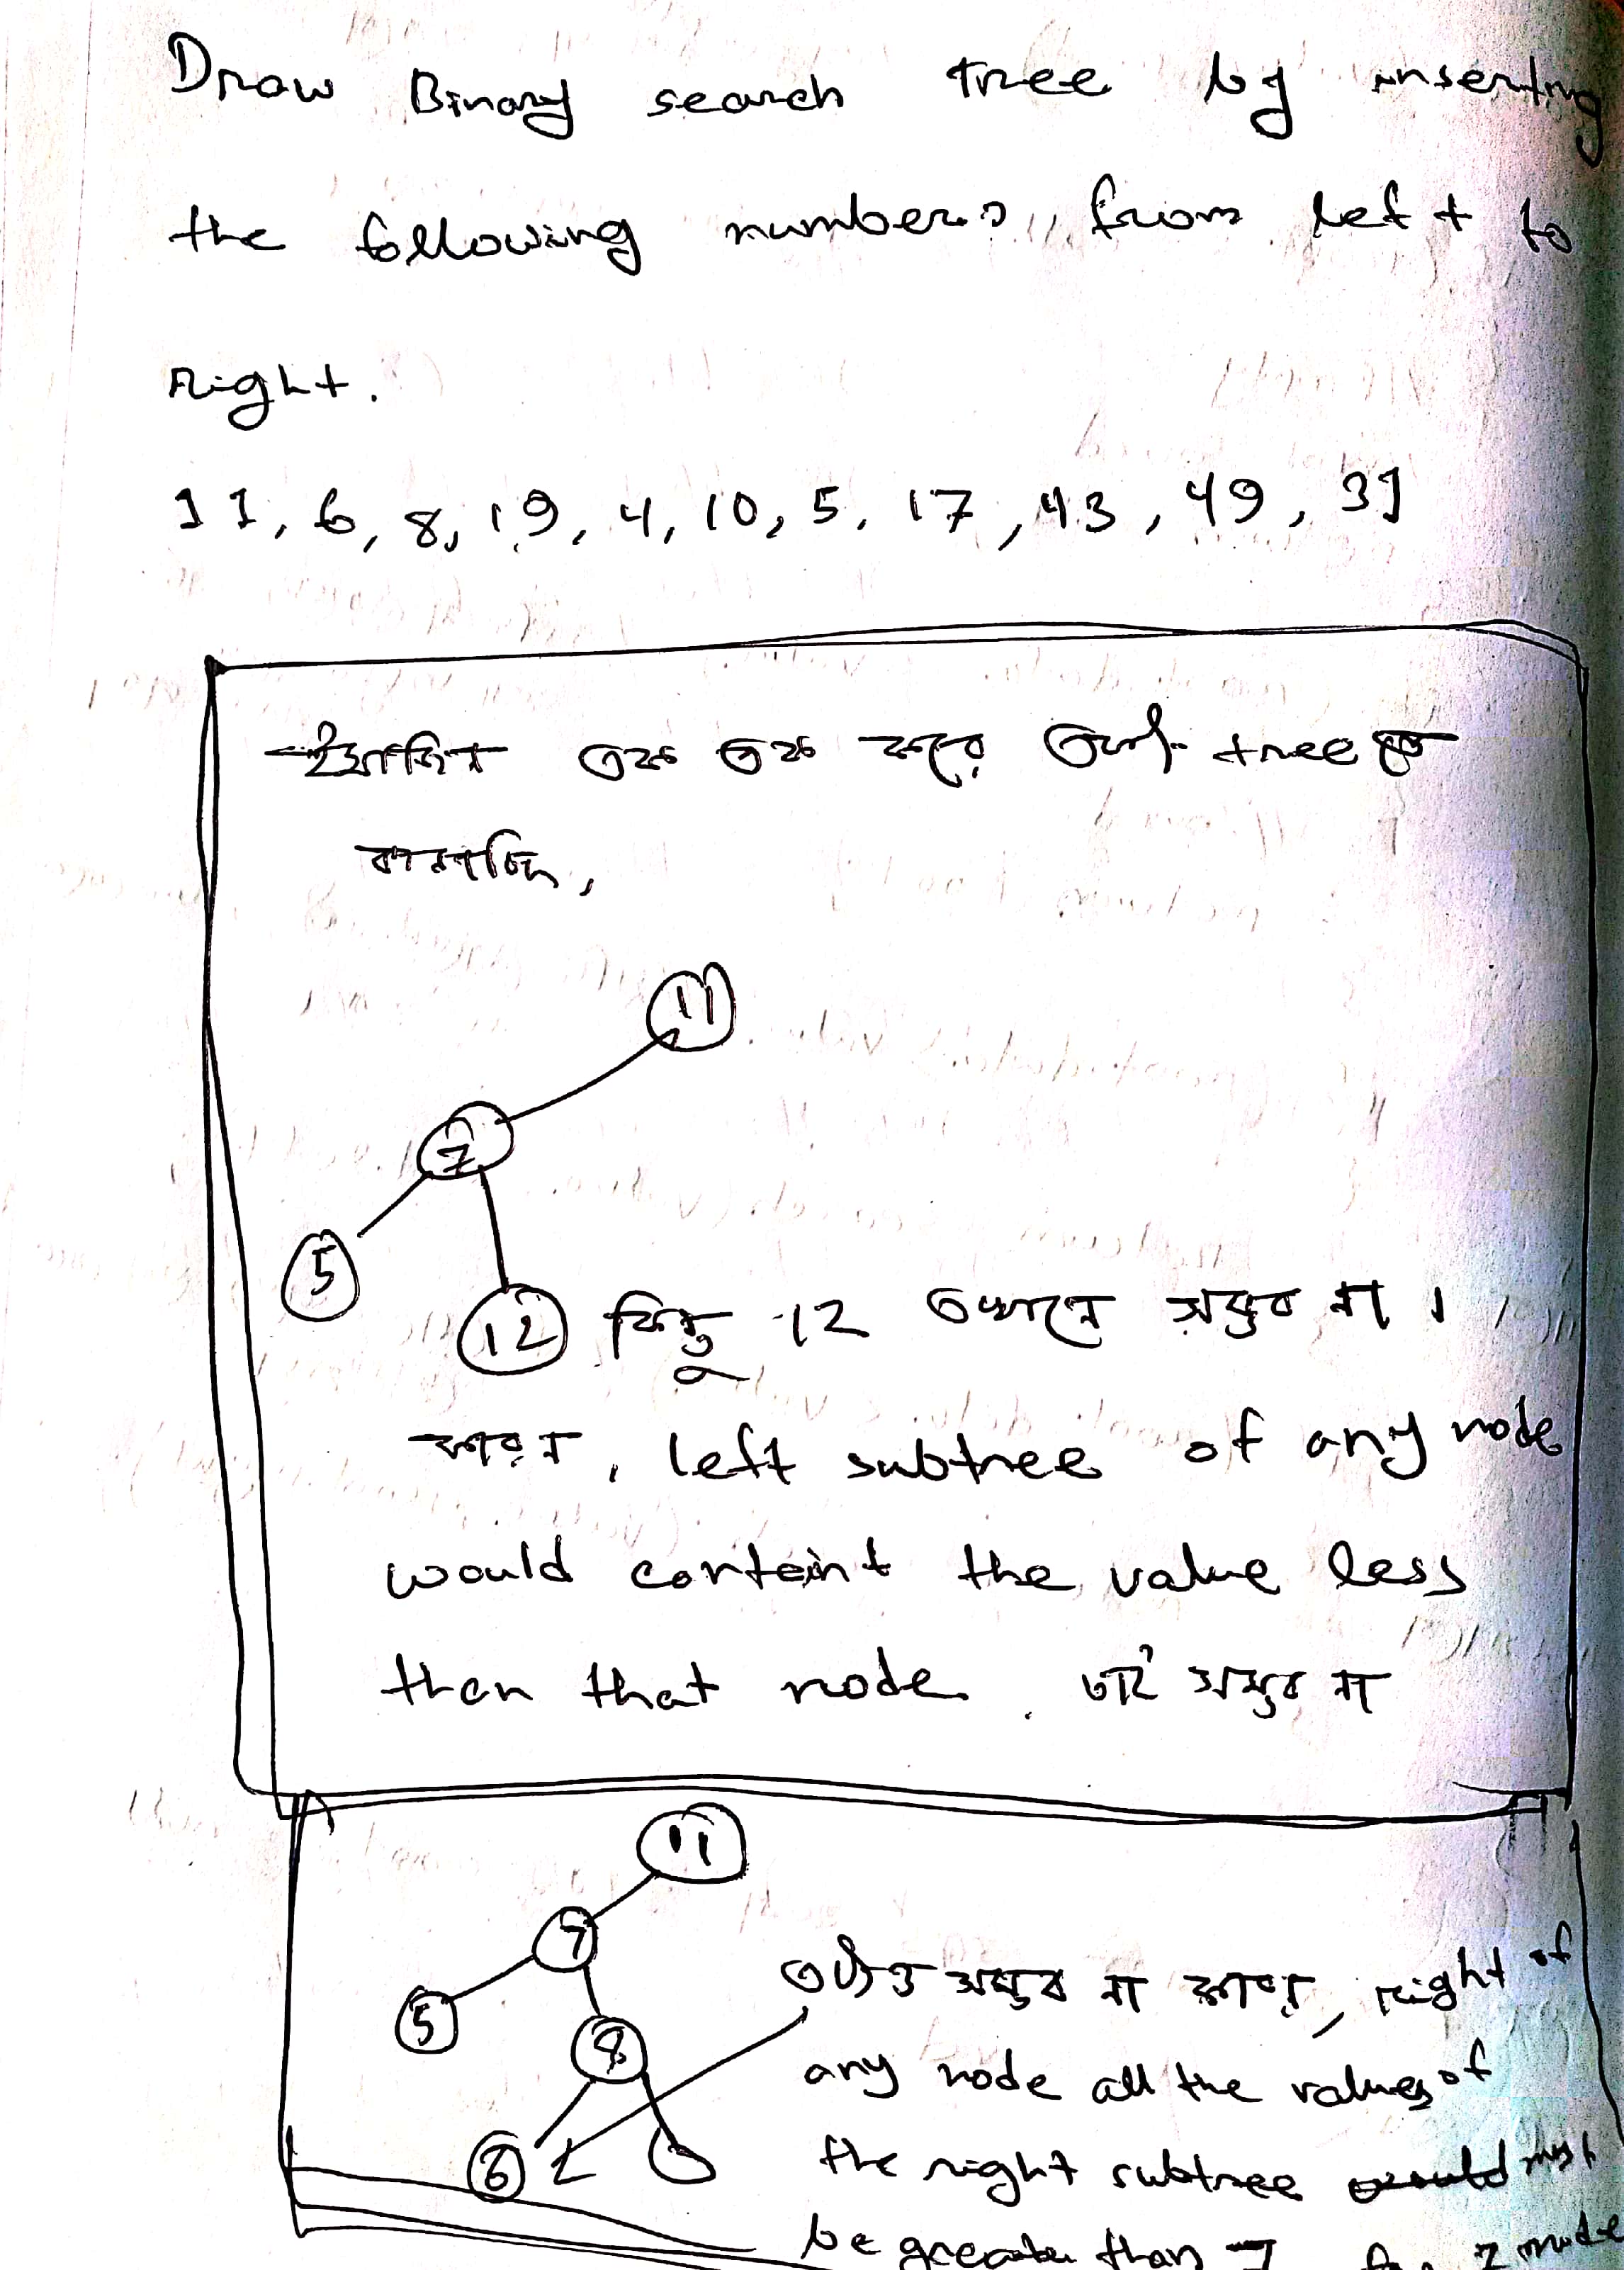 Draw Binary search tree by inserting
the following numbers, from left to
right.
11, 6, 8, 19, 4, 10, 5, 17, 43, 49, 31
এক এক করে tree
বানাচ্ছি,
11
7
5
12 কিন্তু 12 এখানে সম্ভব না।
কারণ, left subtree of any node
would containt the value less
than that node. তাই সম্ভব না
11
7
5
8
6
এটাও সম্ভব না কারণ, right of
any node all the values of
the right subtree must
be greater than 7 for 7 node